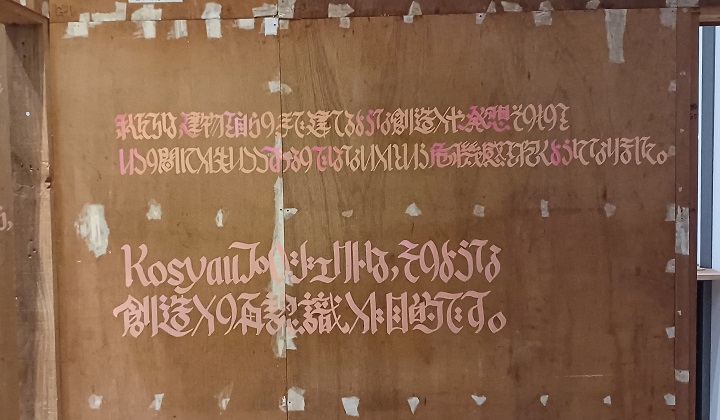 私たちは建物を自らの手で建てるような創造力や発想そのものを
いつの間にか失いつつあるのではないかという危機感を抱くようになりました。
Kosyauプロジェクトは,そのような
創造力の再認識が目的です。